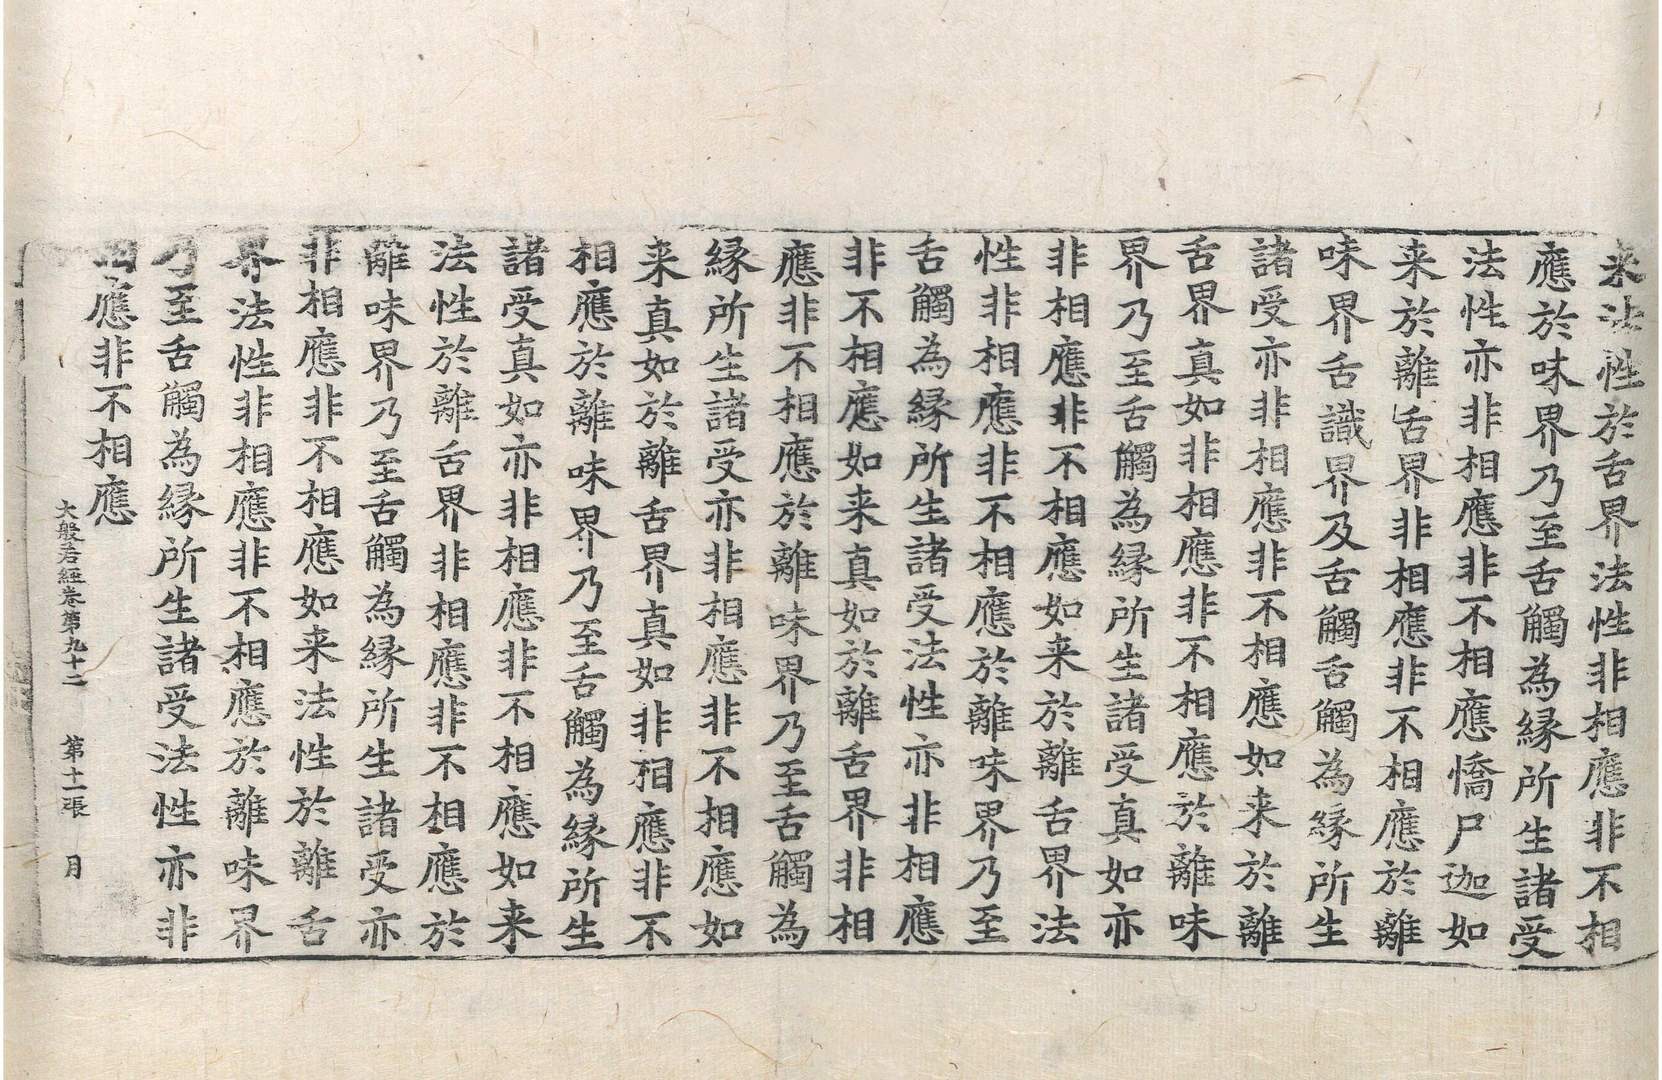 来法性於舌界法性非相應非不相
應於味界乃至舌觸為縁所生諸受
法性亦非相應非不相應憍尸迦如
来於離舌界非相應非不相應於離
味界舌識界及舌觸舌觸為縁所生
諸受亦非相應非不相應如来於離
舌界真如非相應非不相應於離味
界乃至舌觸為縁所生諸受真如亦
非相應非不相應如来於離舌界法
性非相應非不相應於離味界乃至
舌觸為縁所生諸受法性亦非相應
非不相應如来真如於離舌界非相
應非不相應於離味界乃至舌觸為
縁所生諸受亦非相應非不相應如
来真如於離舌界真如非相應非不
相應於離味界乃至舌觸為縁所生
諸受真如亦非相應非不相應如来
法性於離舌界非相應非不相應於
離味界乃至舌觸為縁所生諸受亦
非相應非不相應如来法性於離舌
界法性非相應非不相應於離味界
乃至舌觸為縁所生諸受法性亦非
相應非不相應
大般若經卷第九十二 第十一張 月